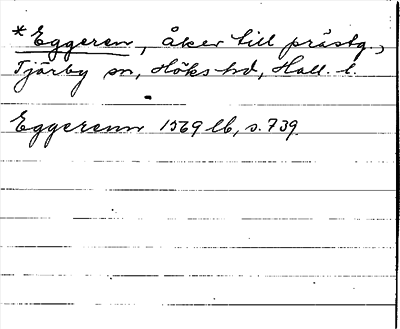 *Eggeren, åker till prästg.,
Tjärby sn, Höks hd, Hall. l.
Eggerenn 1569 lb, s. 739.